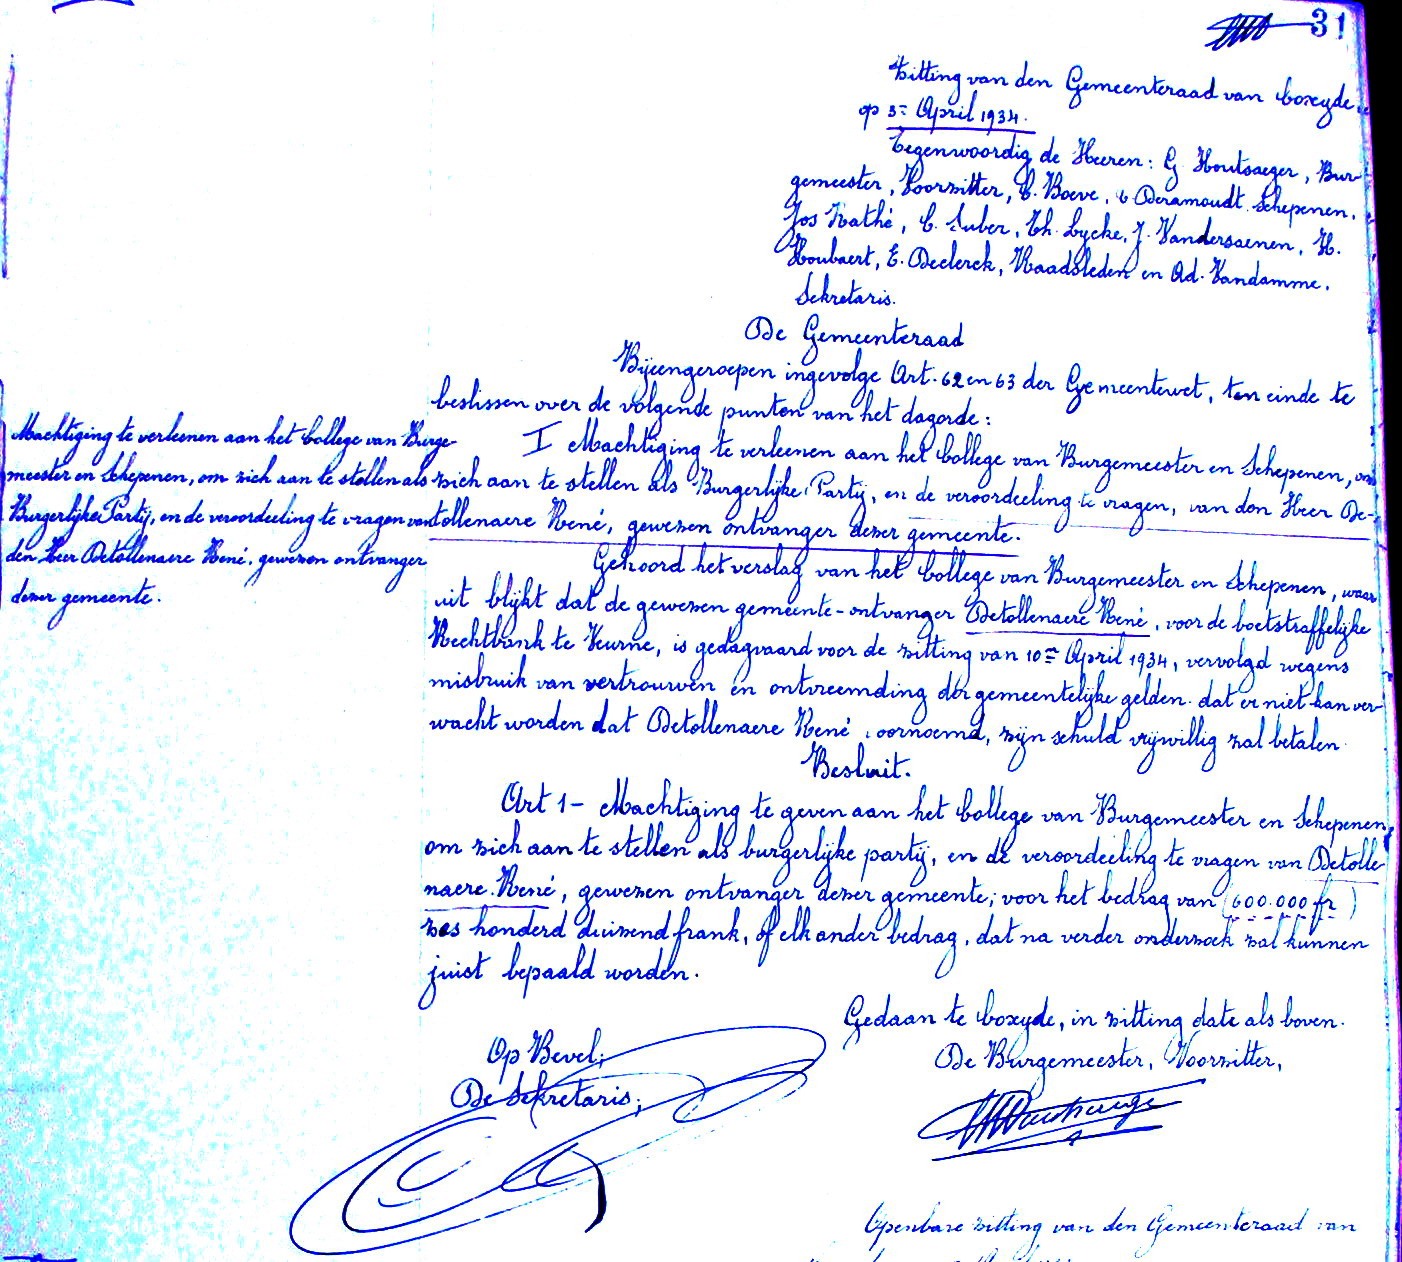 31
Zitting van den Gemeenteraad van Coxyde
op 3n April 1934.
Tegenwoordig de Heeren: G Houtsaeger, Bur-
gemeester, Voorzitter, C. Boeve, C Deramoudt Schepenen,
Jos Rathé, C. Suber, Th. Lycke, J. Vandersaenen, H.
Houbaert, E. Declerck, Raadsleden en Ad. Vandamme,
Sekretaris.
De Gemeenteraad
Bijeengeroepen ingevolge Art. 62 en 63 der Gemeentewet, ten einde te
beslissen over de volgende punten van het dagorde:
Machtiging te verleenen aan het College van Burge-
meester en Schepenen, om zich aan te stellen als
Burgerlijke Partij, en de veroordeeling te vragen van
den Heer Detollenaere René, gewezen ontvanger
dezer gemeente.
I Machtiging te verleenen aan het College van Burgemeester en Schepenen, om
zich aan te stellen als Burgerlijke Partij, en de veroordeeling te vragen, van den Heer De-
tollenaere René, gewezen ontvanger dezer gemeente.
Gehoord het verslag van het College van Burgemeester en Schepenen, waar
uit blijkt dat de gewezen gemeente-ontvanger Detollenaere René, voor de boetstraffelijke
Rechtbank te Veurne, is gedagvaard voor de zitting van 10en April 1934, vervolgd wegens
misbruik van vertrouwen en ontvreemding der gemeentelijke gelden. dat er niet kan ver-
wacht worden dat Detollenaere René voornoemd, zijn schuld vrijwillig zal betalen.
Besluit.
Art 1- Machtiging te geven aan het College van Burgemeester en Schepenen,
om zich aan te stellen als burgerlijke partij, en de veroordeeling te vragen van Detolle
naere René, gewezen ontvanger dezer gemeente, voor het bedrag van (600.000 fr)
zes honderd duizend frank, of elk ander bedrag, dat na verder onderzoek zal kunnen
juist bepaald worden.
Gedaan te Coxyde, in zitting date als boven.
Op Bevel;
De Sekretaris;
De Burgemeester, Voorzitter,
Openbare zitting van den Gemeenteraad van